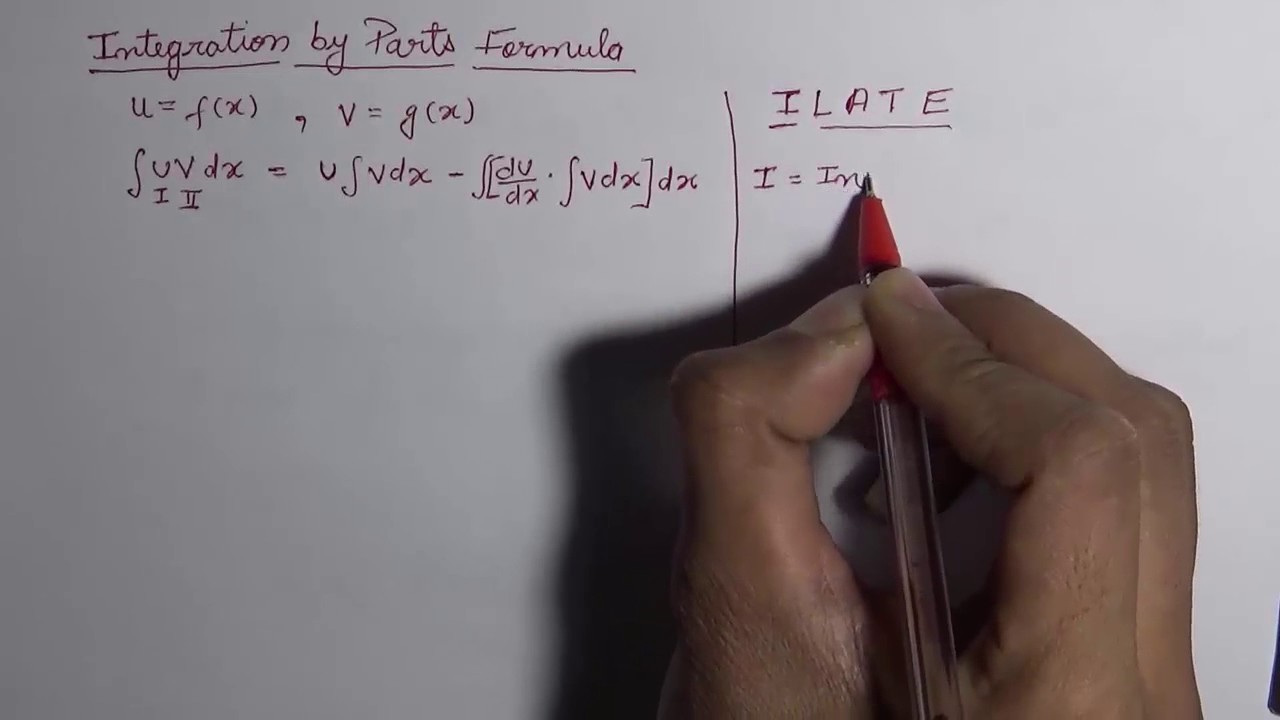 Integration by Parts Formula
u = f(x) , v = g(x)
∫ U V dx = U ∫ V dx - ∫[dU/dx · ∫ V dx] dx
I II
I L A T E
I = Inv